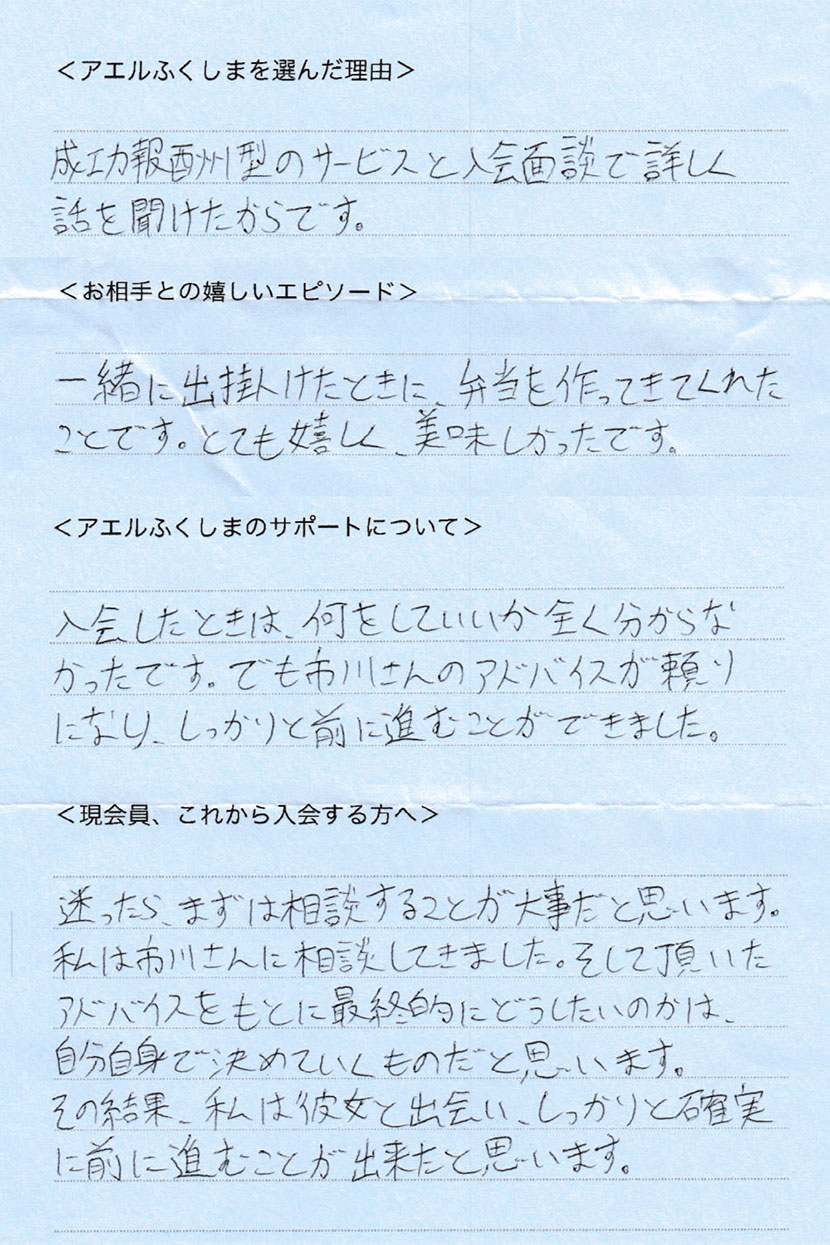 ＜アエルふくしまを選んだ理由＞
成功報酬型のサービスと入会面談で詳しく
話を聞けたからです。
＜お相手との嬉しいエピソード＞
一緒に出掛けたときに、弁当を作ってきてくれた
ことです。とても嬉しく、美味しかったです。
＜アエルふくしまのサポートについて＞
入会したときは、何をしていいか全く分からな
かったです。でも市川さんのアドバイスが頼り
になり、しっかりと前に進むことができました。
＜現会員、これから入会する方へ＞
迷ったら、まずは相談することが大事だと思います。
私は市川さんに相談してきました。そして頂いた
アドバイスをもとに最終的にどうしたいのかは、
自分自身で決めていくものだと思います。
その結果、私は彼女と出会い、しっかりと確実
に前に進むことが出来たと思います。